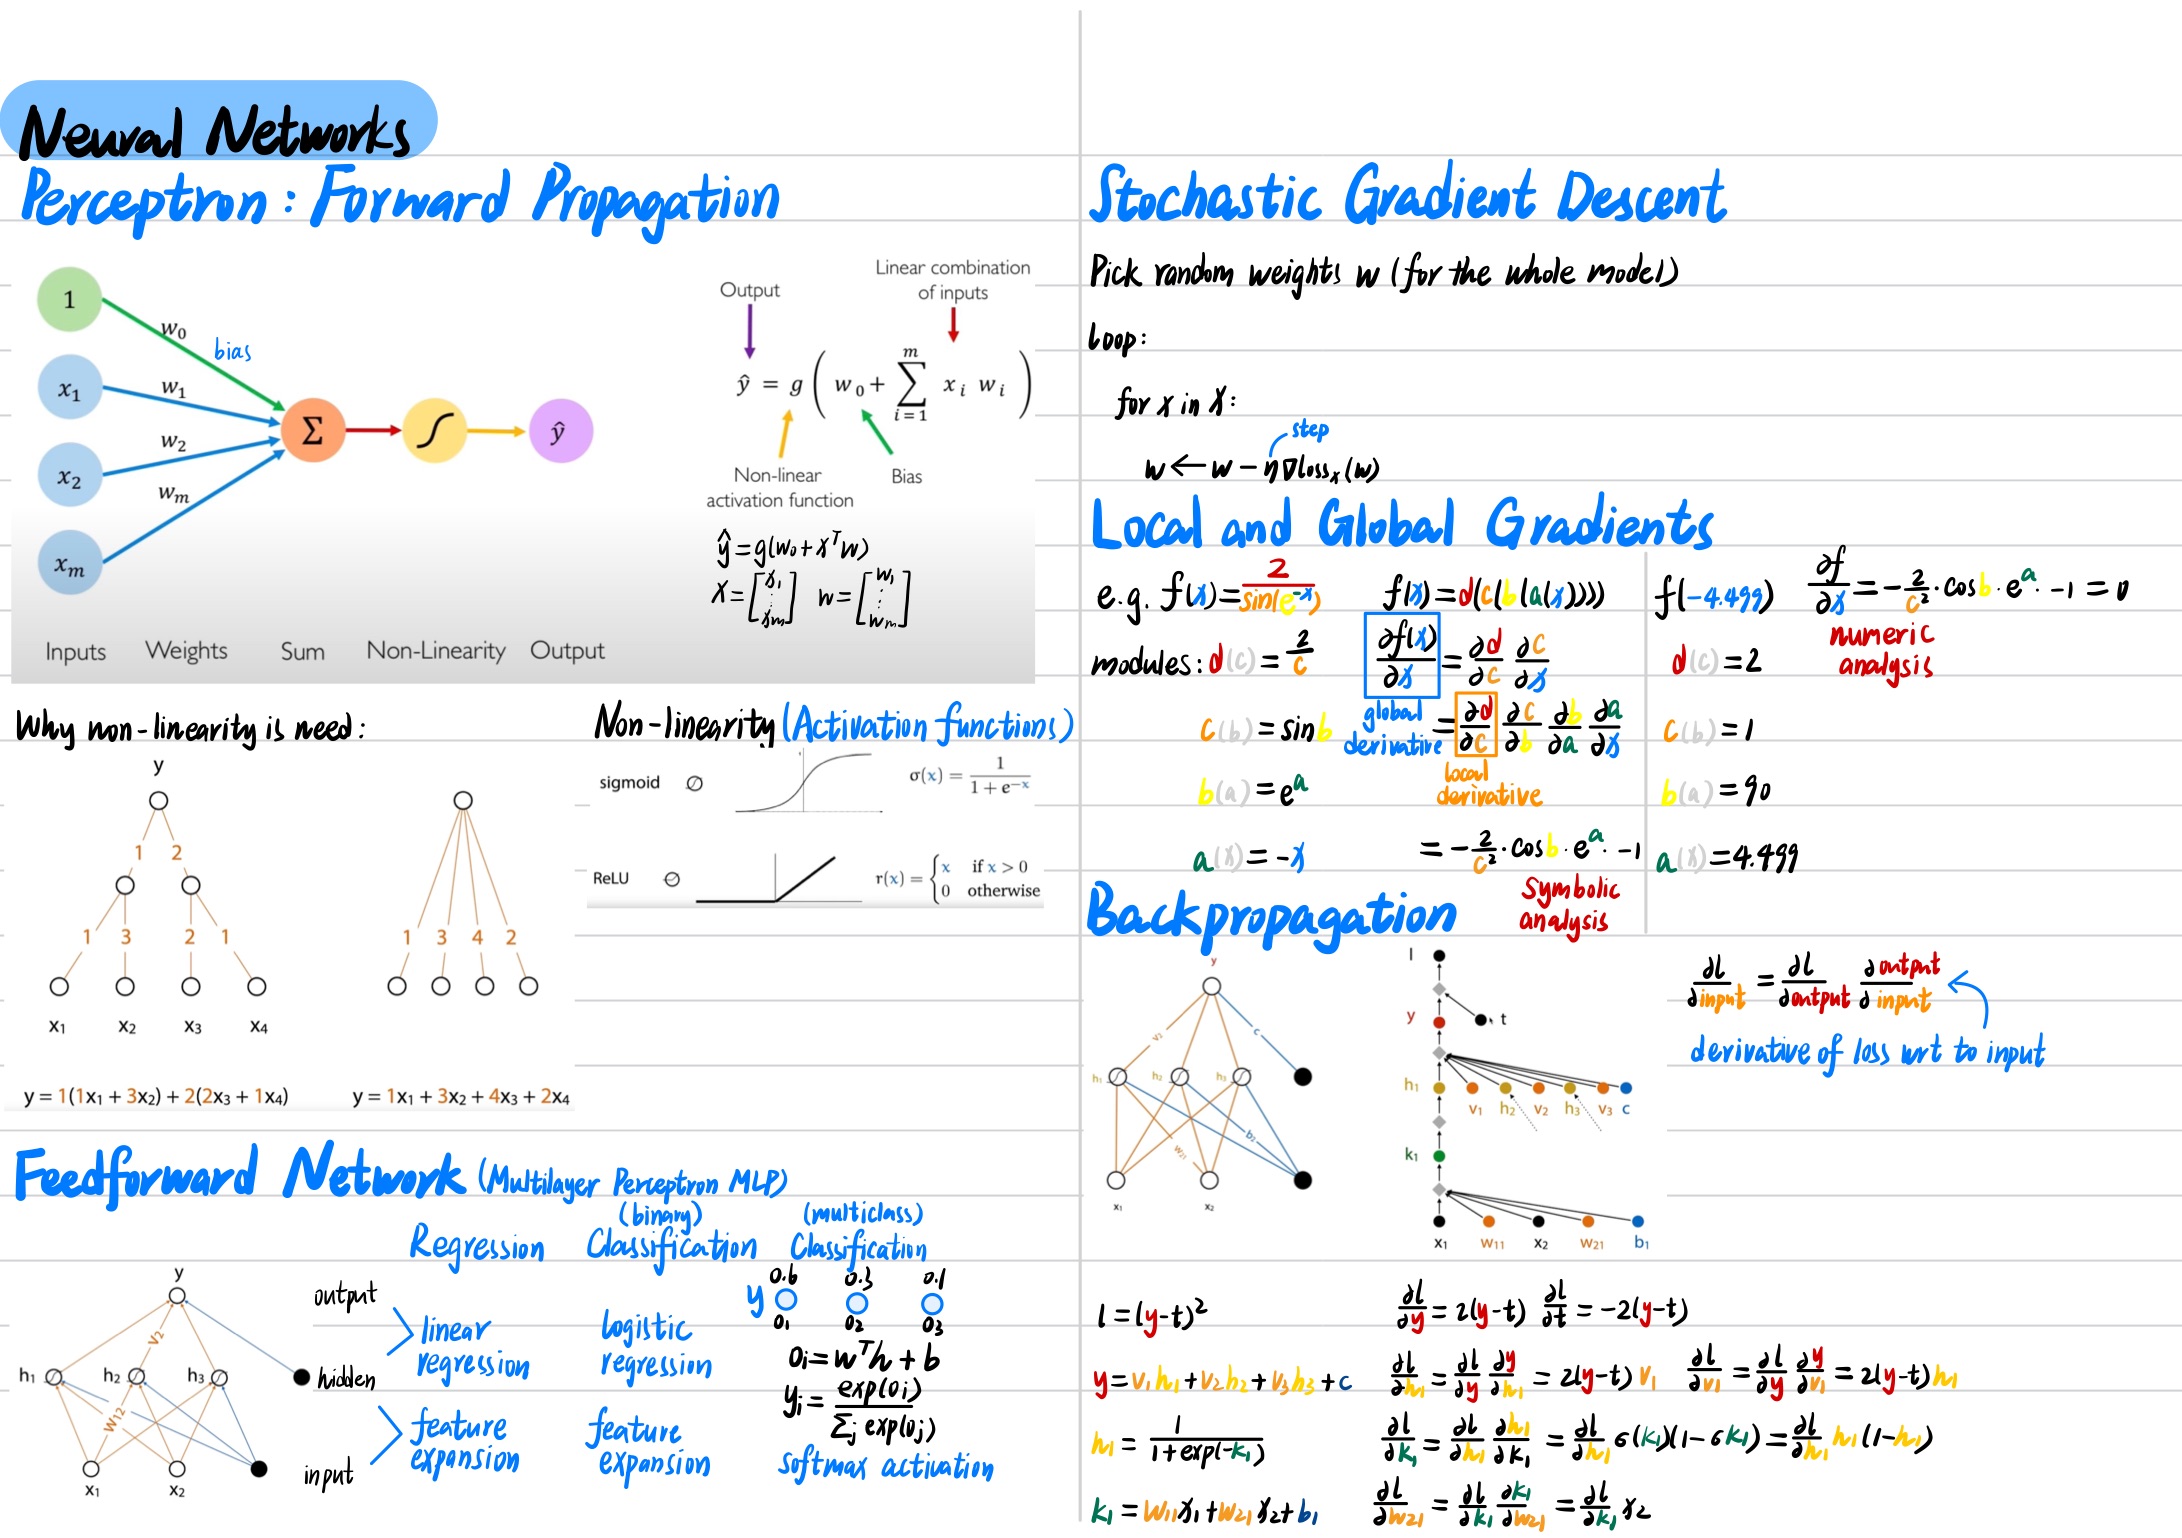 Neural Networks
Perceptron: Forward Propagation
1
w₀
bias
x₁
w₁
x₂
w₂
xₘ
wₘ
Σ
ŷ
Inputs Weights Sum Non-Linearity Output
Output
Linear combination of inputs
ŷ = g ( w₀ + Σ_{i=1}^{m} xᵢ wᵢ )
Non-linear activation function
Bias
ŷ = g(w₀ + Xᵀw)
X = [x₁ ⋮ xₘ] w = [w₁ ⋮ wₘ]
Why non-linearity is need:
y
1 2
1 3 2 1
x₁ x₂ x₃ x₄
y = 1(1x₁ + 3x₂) + 2(2x₃ + 1x₄)
1 3 4 2
y = 1x₁ + 3x₂ + 4x₃ + 2x₄
Non-linearity (Activation functions)
sigmoid
σ(x) = 1 / (1 + e⁻ˣ)
ReLU
r(x) = { x if x > 0
0 otherwise
Feedforward Network (Multilayer Perceptron MLP)
y
v₂
h₁ h₂ h₃
w₁₂
x₁ x₂
output
hidden
input
Regression
linear regression
feature expansion
(binary)
Classification
logistic regression
feature expansion
(multiclass)
Classification
0.6 0.3 0.1
y
o₁ o₂ o₃
oᵢ = wᵀh + b
yᵢ = exp(oᵢ) / Σⱼ exp(oⱼ)
softmax activation
Stochastic Gradient Descent
Pick random weights w (for the whole model)
loop:
for x in X:
step
w ← w − η∇lossₓ(w)
Local and Global Gradients
e.g. f(x) = 2 / sin(e⁻ˣ)
modules: d(c) = 2/c
c(b) = sin b
b(a) = eᵃ
a(x) = -x
f(x) = d(c(b(a(x))))
∂f(x)/∂x = ∂d/∂c ∂c/∂x
global derivative
= ∂d/∂c ∂c/∂b ∂b/∂a ∂a/∂x
local derivative
= -2/c² · cos b · eᵃ · -1
symbolic analysis
f(-4.499)
d(c) = 2
c(b) = 1
b(a) = 90
a(x) = 4.499
∂f/∂x = -2/c² · cos b · eᵃ · -1 = 0
numeric analysis
Backpropagation
y
v₂
c
h₁ h₂ h₃
w₂₁
b₂
x₁ x₂
l
y t
h₁ v₁ h₂ v₂ h₃ v₃ c
k₁
x₁ w₁₁ x₂ w₂₁ b₁
∂l/∂input = ∂l/∂output ∂output/∂input
derivative of loss wrt to input
l = (y-t)²
∂l/∂y = 2(y-t) ∂l/∂t = -2(y-t)
y = v₁h₁ + v₂h₂ + v₃h₃ + c
∂l/∂h₁ = ∂l/∂y ∂y/∂h₁ = 2(y-t) v₁ ∂l/∂v₁ = ∂l/∂y ∂y/∂v₁ = 2(y-t) h₁
h₁ = 1 / (1 + exp(-k₁))
∂l/∂k₁ = ∂l/∂h₁ ∂h₁/∂k₁ = ∂l/∂h₁ σ(k₁)(1-σk₁) = ∂l/∂h₁ h₁(1-h₁)
k₁ = w₁₁x₁ + w₂₁x₂ + b₁
∂l/∂w₂₁ = ∂l/∂k₁ ∂k₁/∂w₂₁ = ∂l/∂k₁ x₂